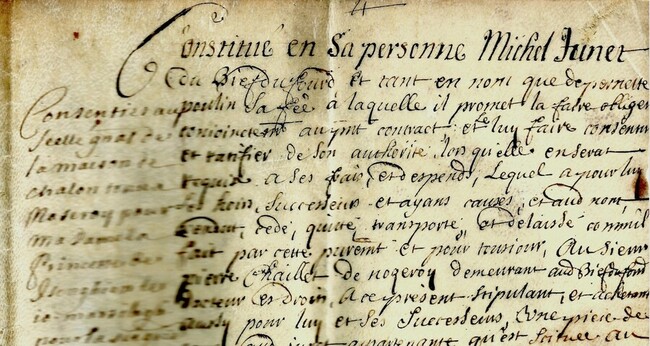 Constitué en sa personne Michel Junet
du Biefdufourd et tant en nom que de pernette
poulin sa feê à laquelle il promet la faire obliger
conjoinctemt au pnt contract et luy faire consentir
et ratifier de son authorité, lors qu'elle en serat
requis a ses frais, et despends, Lequel a pour luy
ses hoirs, Successeurs et ayans causes, et aud nom,
vendut, cedé, quitté transporté et délaissé comm'il
fait par cette purémt et pour tousiour, Au sieur
pierre Chaillet de nogeroy demeurant aud Biefdufourd
Docteur es Droits, a ce présent stipulant, et acheptant
aussy pour luy et ses Successeurs, Une piece de
appartenante qu'est scituee au
Consenties au
scelle gnal de
la maison de
chalon
pour
madame la
Princesse de